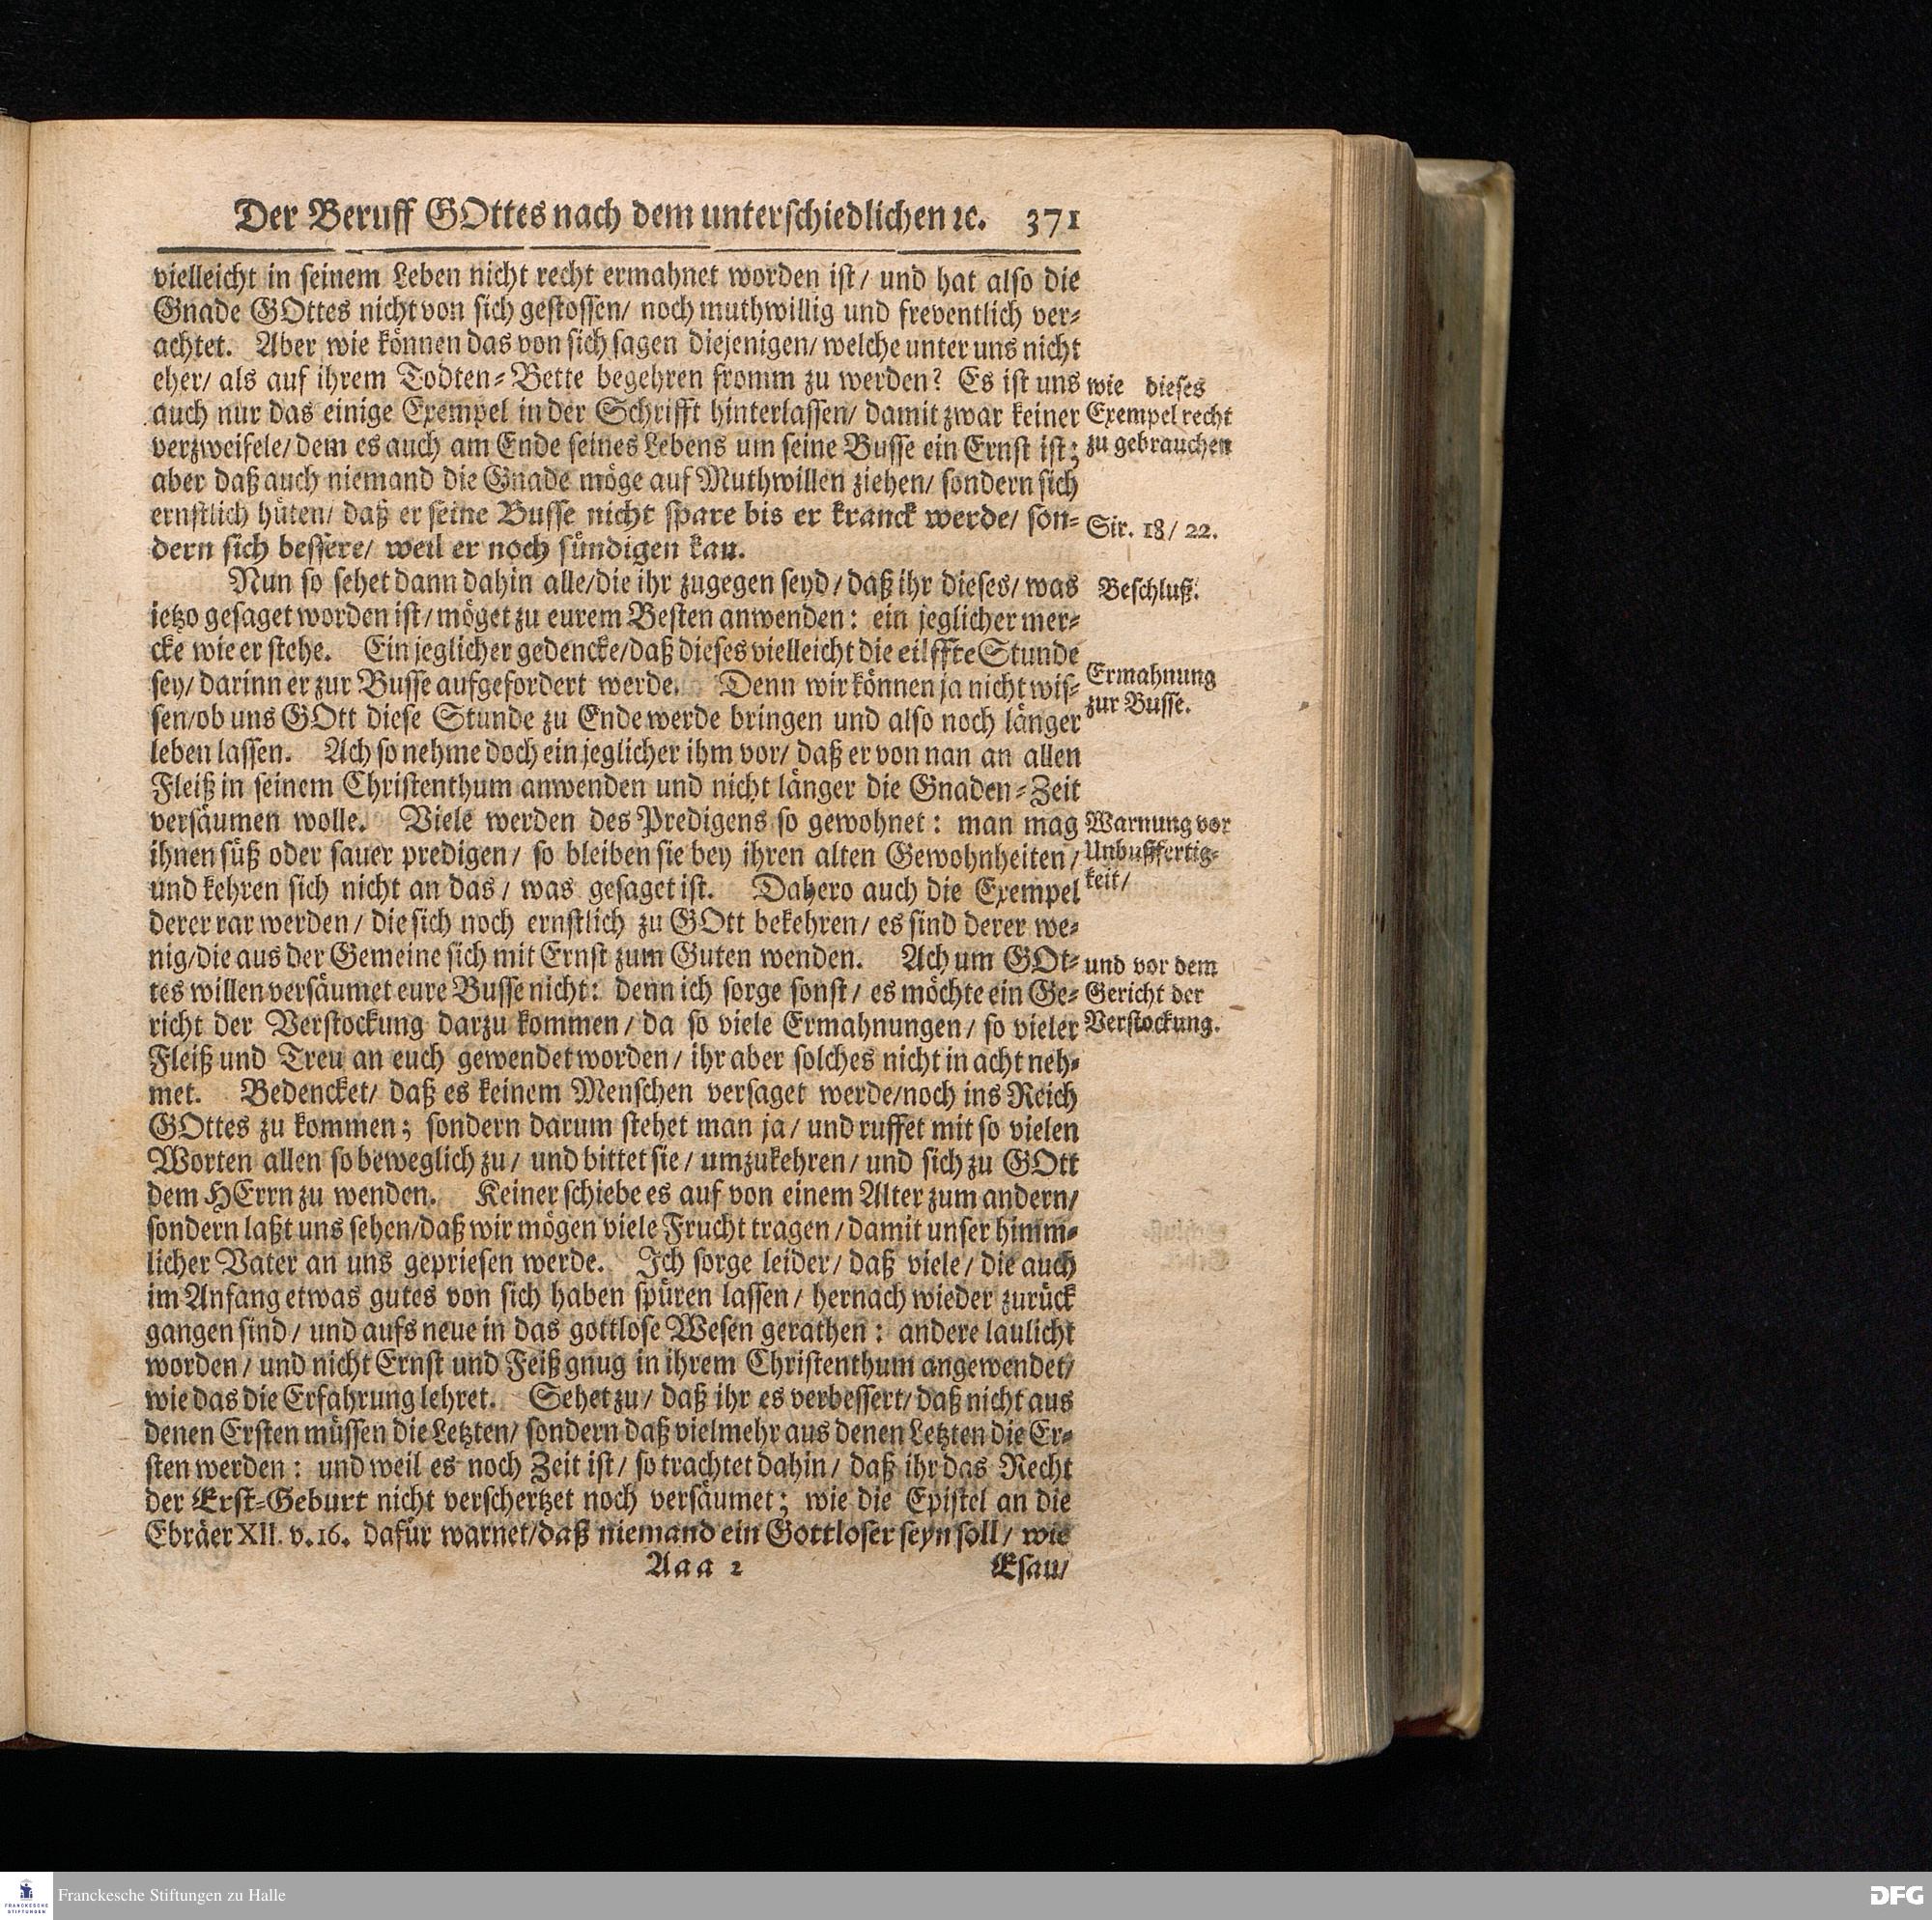 Der Beruff GOttes nach dem unterschiedlichen ꝛc. 371
vielleicht in seinem Leben nicht recht ermahnet worden ist/ und hat also die
Gnade GOttes nicht von sich gestossen/ noch muthwillig und freventlich ver-
achtet. Aber wie können das von sich sagen diejenigen/ welche unter uns nicht
eher/ als auf ihrem Todten-Bette begehren fromm zu werden? Es ist uns
auch nur das einige Exempel in der Schrifft hinterlassen/ damit zwar keiner
verzweifele/ dem es auch am Ende seines Lebens um seine Busse ein Ernst ist;
aber daß auch niemand die Gnade möge auf Muthwillen ziehen/ sondern sich
ernstlich hüten/ daß er seine Busse nicht spare bis er kranck werde/ son-
dern sich bessere/ weil er noch sündigen kan.
Nun so sehet dann dahin alle/die ihr zugegen seyd/ daß ihr dieses/ was
ietzo gesaget worden ist/ möget zu eurem Besten anwenden: ein jeglicher mer-
cke wie er stehe. Ein jeglicher gedencke/daß dieses vielleicht die eilffte Stunde
sey/ darinn er zur Busse aufgefordert werde. Denn wir können ja nicht wis-
sen/ob uns GOtt diese Stunde zu Ende werde bringen und also noch länger
leben lassen. Ach so nehme doch ein jeglicher ihm vor/ daß er von nan an allen
Fleiß in seinem Christenthum anwenden und nicht länger die Gnaden-Zeit
versäumen wolle. Viele werden des Predigens so gewohnet: man mag
ihnen süß oder sauer predigen/ so bleiben sie bey ihren alten Gewohnheiten/
und kehren sich nicht an das/ was gesaget ist. Dahero auch die Exempel
derer rar werden/ die sich noch ernstlich zu GOtt bekehren/ es sind derer we-
nig/die aus der Gemeine sich mit Ernst zum Guten wenden. Ach um GOt-
tes willen versäumet eure Busse nicht: denn ich sorge sonst/ es möchte ein Ge-
richt der Verstockung darzu kommen/ da so viele Ermahnungen/ so vieler
Fleiß und Treu an euch gewendet worden/ ihr aber solches nicht in acht neh-
met. Bedencket/ daß es keinem Menschen versaget werde/noch ins Reich
GOttes zu kommen; sondern darum stehet man ja/ und ruffet mit so vielen
Worten allen so beweglich zu/ und bittet sie/ umzukehren/ und sich zu GOtt
dem HErrn zu wenden. Keiner schiebe es auf von einem Alter zum andern/
sondern laßt uns sehen/daß wir mögen viele Frucht tragen/ damit unser himm-
licher Vater an uns gepriesen werde. Ich sorge leider/ daß viele/ die auch
im Anfang etwas gutes von sich haben spüren lassen/ hernach wieder zurück
gangen sind/ und aufs neue in das gottlose Wesen gerathen: andere laulicht
worden/ und nicht Ernst und Feiß gnug in ihrem Christenthum angewendet/
wie das die Erfahrung lehret. Sehet zu/ daß ihr es verbessert/ daß nicht aus
denen Ersten müssen die Letzten/ sondern daß vielmehr aus denen Letzten die Er-
sten werden: und weil es noch Zeit ist/ so trachtet dahin/ daß ihr das Recht
der Erst-Geburt nicht verschertzet noch versäumet; wie die Epistel an die
Ebräer XII. v. 16. dafür warnet/daß niemand ein Gottloser seyn soll/ wie
Aaa 2 Esau/
wie dieses
Exempel recht
zu gebrauchen
Sir. 18/ 22.
Beschluß.
Ermahnung
zur Busse.
Warnung vor
Unbußfertig-
keit/
und vor dem
Gericht der
Verstockung.
FRANCKESCHE
STIFTUNGEN
Franckesche Stiftungen zu Halle
DFG